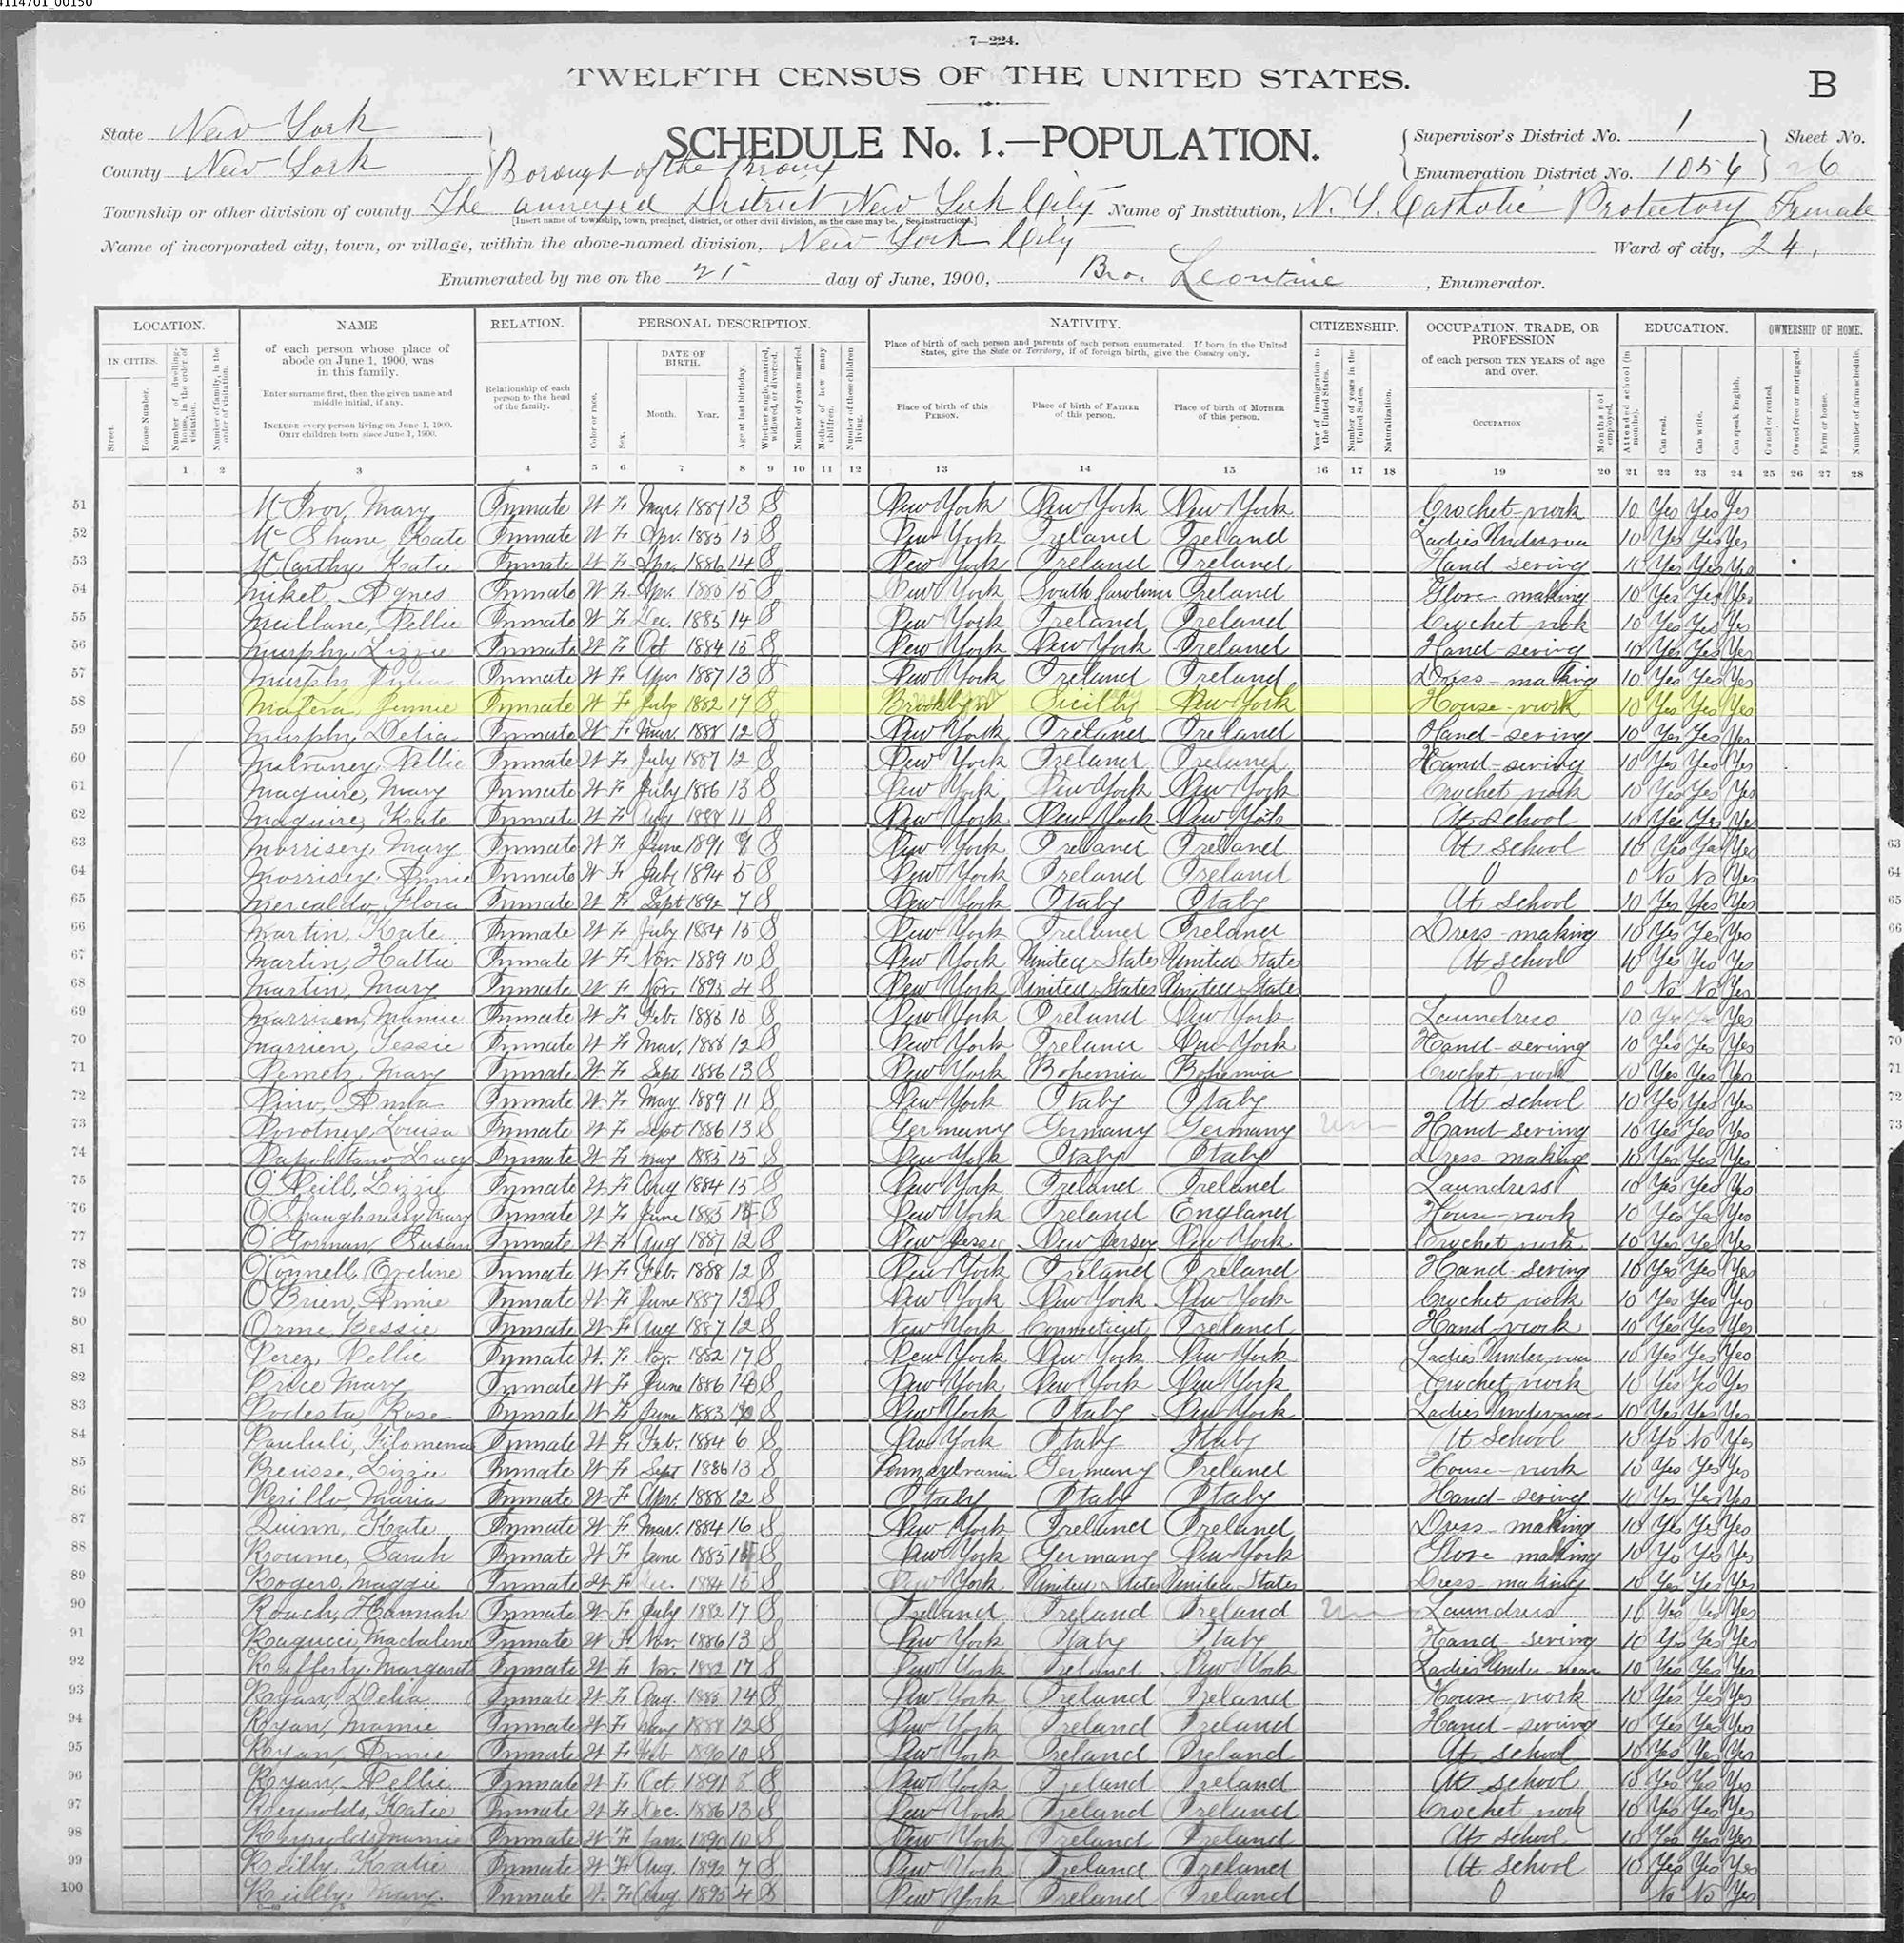 4114701_00150
7—224.
TWELFTH CENSUS OF THE UNITED STATES.
B
State New York
SCHEDULE No. 1.—POPULATION.
Supervisor's District No. 1 Sheet No.
County New York Borough of the Bronx
Enumeration District No. 1056 26
Township or other division of county The annexed District New York City Name of Institution, N. Y. Catholic Protectory Female
[Insert name of township, town, precinct, district, or other civil division, as the case may be. See instructions.]
Name of incorporated city, town, or village, within the above-named division, New York City Ward of city, 24.
Enumerated by me on the 25 day of June, 1900, Bro. Leontine, Enumerator.
LOCATION. NAME RELATION. PERSONAL DESCRIPTION. NATIVITY. CITIZENSHIP. OCCUPATION, TRADE, OR PROFESSION EDUCATION. OWNERSHIP OF HOME.
IN CITIES. Street. House Number. Number of dwelling-house, in the order of visitation. Number of family, in the order of visitation.
of each person whose place of abode on June 1, 1900, was in this family.
Enter surname first, then the given name and middle initial, if any.
INCLUDE every person living on June 1, 1900. OMIT children born since June 1, 1900.
Relationship of each person to the head of the family.
Color or race. Sex. DATE OF BIRTH. Month. Year. Age at last birthday. Whether single, married, widowed, or divorced. Number of years married. Mother of how many children. Number of these children living.
Place of birth of each person and parents of each person enumerated. If born in the United States, give the State or Territory; if of foreign birth, give the Country only.
Place of birth of this PERSON. Place of birth of FATHER of this person. Place of birth of MOTHER of this person.
Year of immigration to the United States. Number of years in the United States. Naturalization.
of each person TEN YEARS of age and over.
OCCUPATION Months not employed.
Attended school (in months). Can read. Can write. Can speak English.
Owned or rented. Owned free or mortgaged. Farm or house. Number of farm schedule.
1 2 3 4 5 6 7 8 9 10 11 12 13 14 15 16 17 18 19 20 21 22 23 24 25 26 27 28
51 Mary Inmate W F Mar. 1887 13 S New York New York New York Crochet-work 10 Yes Yes Yes
52 Mc Shane, Kate Inmate W F Apr. 1885 15 S New York Ireland Ireland Ladies 10 Yes Yes Yes
53 McCarthy, Katie Inmate W F Apr. 1886 14 S New York Ireland Ireland Hand-sewing Yes Yes Yes
54 Agnes Inmate W F Apr. 1885 15 S New York South Carolina Ireland Glove-making 10 Yes Yes Yes
55 Mullane, Nellie Inmate W F Dec. 1885 14 S New York Ireland Ireland Crochet work 10 Yes Yes Yes
56 Murphy, Lizzie Inmate W F Oct 1884 15 S New York New York Ireland Hand-sewing 10 Yes Yes Yes
57 Murphy Inmate W F Apr 1887 13 S New York Ireland Ireland Dress-making 10 Yes Yes Yes
58 Mafera, Jennie Inmate W F July 1882 17 S Brooklyn Sicilly New York House-work 10 Yes Yes Yes
59 Murphy, Delia Inmate W F Mar. 1888 12 S New York Ireland Ireland Hand-sewing 10 Yes Yes Yes
60 Mulvaney, Nellie Inmate W F July 1887 12 S New York Ireland Ireland Hand-sewing 10 Yes Yes Yes
61 Maguire, Mary Inmate W F July 1886 13 S New York New York New York Crochet work 10 Yes Yes Yes
62 Maguire, Kate Inmate W F Aug 1888 11 S New York New York New York At school 10 Yes Yes Yes
63 Morrisey, Mary Inmate W F June 1891 S New York Ireland Ireland At school 10 Yes Yes Yes
64 Morrisey, Annie Inmate W F July 1894 5 S New York Ireland Ireland 0 0 No No Yes
65 Mercaldo, Flora Inmate W F Sept 1892 7 S New York Italy Italy At school 10 Yes Yes Yes
66 Martin, Kate Inmate W F July 1884 15 S New York Ireland Ireland Dress-making 10 Yes Yes Yes
67 Martin, Hattie Inmate W F Nov. 1889 10 S New York United States United States At school 10 Yes Yes Yes
68 Martin, Mary Inmate W F Nov. 1895 4 S New York United States United States 0 0 No No Yes
69 Marrien, Mamie Inmate W F Feb. 1885 15 S New York Ireland New York Laundress 10 Yes Yes Yes
70 Marrien, Jessie Inmate W F Mar. 1888 12 S New York Ireland New York Hand-sewing 10 Yes Yes Yes
71 Nemeh, Mary Inmate W F Sept 1886 13 S New York Bohemia Bohemia Crochet work 10 Yes Yes Yes
72 Nino, Anna Inmate W F May 1889 11 S New York Italy Italy At school 10 Yes Yes Yes
73 Novotney, Louisa Inmate W F Sept 1886 13 S Germany Germany Germany Un Hand-sewing 10 Yes Yes Yes
74 Napolitano Lucy Inmate W F May 1885 15 S New York Italy Italy Dress-making 10 Yes Yes Yes
75 O'Neill, Lizzie Inmate W F Aug 1884 15 S New York Ireland Ireland Laundress 10 Yes Yes Yes
76 O'Shaughnessy, Mary Inmate W F June 1885 S New York Ireland England House-work 10 Yes Yes Yes
77 O'Gorman, Susan Inmate W F Aug 1887 12 S New Jersey New Jersey New York Crochet work 10 Yes Yes Yes
78 O'Connell, Eveline Inmate W F Feb. 1888 12 S New York Ireland Ireland Hand-sewing 10 Yes Yes Yes
79 O'Brien, Annie Inmate W F June 1887 S New York New York New York Crochet work 10 Yes Yes Yes
80 Orme, Bessie Inmate W F Aug 1887 12 S New York Connecticut Ireland Hand-work 10 Yes Yes Yes
81 Perez, Nellie Inmate W F Nov. 1882 17 S New York New York New York Ladies Underwear 10 Yes Yes Yes
82 Price Mary Inmate W F June 1886 S New York New York New York Crochet work 10 Yes Yes Yes
83 Podesta, Rose Inmate W F June 1883 S New York Italy New York Ladies Underwear 10 Yes Yes Yes
84 Paululi, Filomena Inmate W F Feb. 1894 6 S New York Italy Italy At School 10 Yes No Yes
85 Preusse, Lizzie Inmate W F Sept 1886 13 S Pennsylvania Germany Ireland House-work 10 Yes Yes Yes
86 Perillo, Maria Inmate W F Apr. 1888 12 S Italy Italy Italy Hand-sewing 10 Yes Yes Yes
87 Quinn, Kate Inmate W F Mar. 1884 16 S New York Ireland Ireland Dress-making 10 Yes Yes Yes
88 Sarah Inmate W F June 1885 S New York Germany New York Glove making 10 Yes Yes Yes
89 Rogers, Maggie Inmate W F Dec. 1884 15 S New York United States United States Dress-making 10 Yes Yes Yes
90 Rouch, Hannah Inmate W F July 1882 17 S Ireland Ireland Ireland Un Laundress 10 Yes Yes Yes
91 Ragucci, Madalene Inmate W F Nov. 1886 13 S New York Italy Italy Hand sewing 10 Yes Yes Yes
92 Rafferty, Margaret Inmate W F Nov. 1882 17 S New York Ireland New York Ladies Under-wear 10 Yes Yes Yes
93 Ryan, Delia Inmate W F Aug. 1885 14 S New York Ireland Ireland House-work 10 Yes Yes Yes
94 Ryan, Mamie Inmate W F May 1888 12 S New York Ireland Ireland Hand-sewing 10 Yes Yes Yes
95 Ryan, Annie Inmate W F Feb 1890 10 S New York Ireland Ireland At school 10 Yes Yes Yes
96 Ryan, Nellie Inmate W F Oct. 1891 8 S New York Ireland Ireland At school 10 Yes Yes Yes
97 Reynolds, Katie Inmate W F Dec. 1886 13 S New York Ireland Ireland Crochet work 10 Yes Yes Yes
98 Reynolds, Mamie Inmate W F Jan. 1890 10 S New York Ireland Ireland At school 10 Yes Yes Yes
99 Reilly, Katie Inmate W F Aug. 1892 7 S New York Ireland Ireland At school 10 Yes Yes Yes
100 Reilly, Mary Inmate W F Aug 1895 4 S New York Ireland Ireland 0 No No Yes